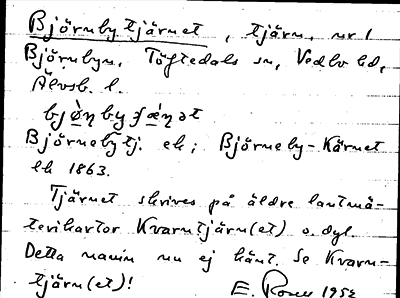 Björnby tjärnet, tjärn, nr 1
Björnbyn, Töftedals sn, Vedbo hd,
Älvsb. l.
bjø̀ṇbyʃæ̀ṇət
Björnebytj. ek; Björneby-Kärnet
lk 1863.
Tjärnet skrives på äldre lantmä-
terikartor Kvarntjärn(et) o. dyl.
Detta namn nu ej känt. Se Kvarn-
tjärn(et)!
E. 1952